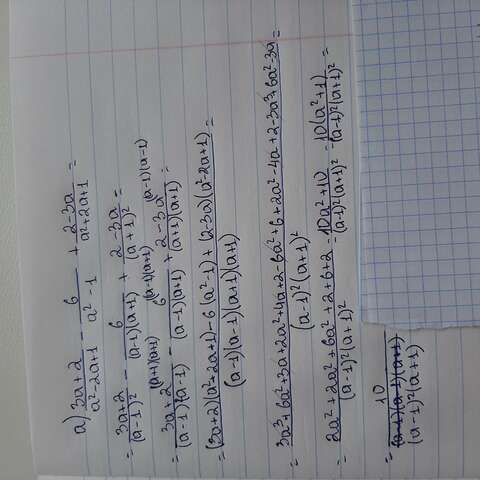 а) (3a+2)/(a²-2a+1) - 6/(a²-1) + (2-3a)/(a²+2a+1) =
= (3a+2)/(a-1)² - 6/((a-1)(a+1)) + (2-3a)/(a+1)² =
(a+1)(a+1) (a-1)(a+1) (a-1)(a-1)
= (3a+2)/((a-1)(a-1)) - 6/((a-1)(a+1)) + (2-3a)/((a+1)(a+1)) =
= ((3a+2)(a²+2a+1)-6(a²-1)+(2-3a)(a²-2a+1))/((a-1)(a-1)(a+1)(a+1)) =
= (3a³+6a²+3a+2a²+4a+2-6a²+6+2a²-4a+2-3a³+6a²-3a)/((a-1)²(a+1)²) =
= (2a²+2a²+6a²+2+6+2)/((a-1)²(a+1)²) = (10a²+10)/((a-1)²(a+1)²) = 10(a²+1)/((a-1)²(a+1)²) =
10/((a-1)(a-1)(a+1))
(a-1)²(a+1)